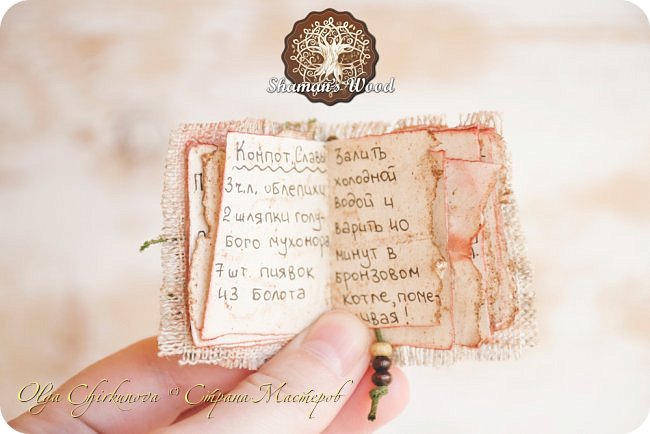 Shaman's Wood
Компот, Славы
3 ч.л. облепихи
2 шляпки голу-
бого мухомора
7 шт. пиявок
из болота
Залить
холодной
водой и
варить 40
минут в
бронзовом
котле, поме-
шивая!
Olga Chirkunova © Страна Мастеров